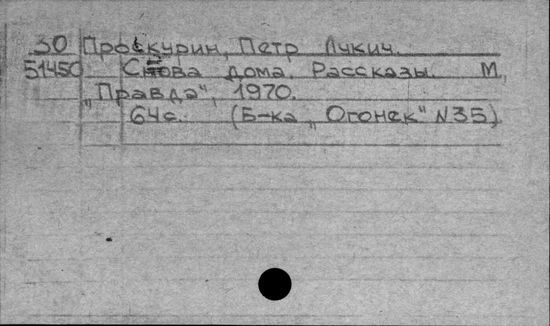 30 Проскурин, Петр Лукич.
51450 Снова дома. Рассказы. М.,
„Правда", 1970.
64с. (Б-ка „Огонек" N35)